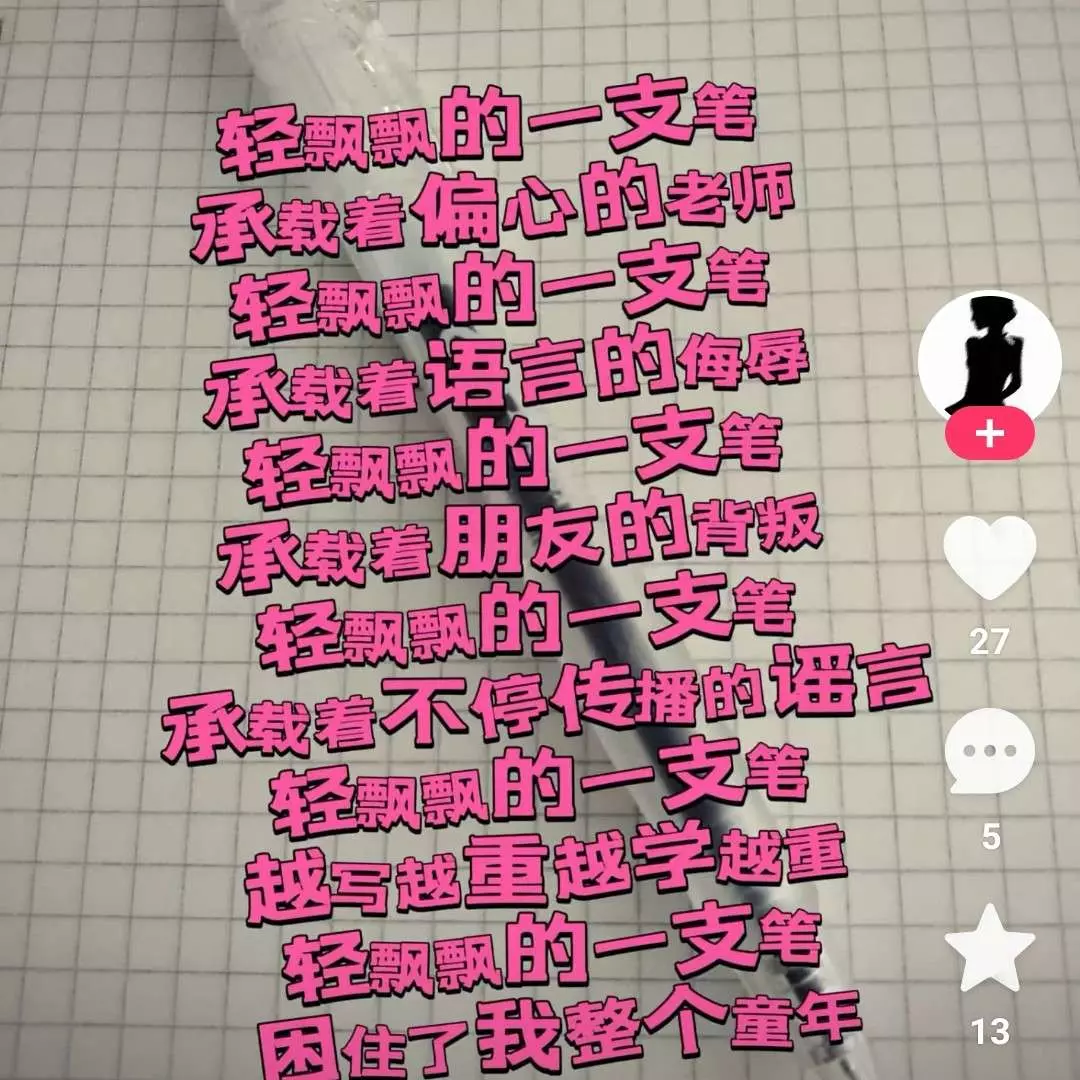 轻飘飘的一支笔
承载着偏心的老师
轻飘飘的一支笔
承载着语言的侮辱
轻飘飘的一支笔
承载着朋友的背叛
轻飘飘的一支笔
承载着不停传播的谣言
轻飘飘的一支笔
越写越重越学越重
轻飘飘的一支笔
困住了我整个童年
27
5
13